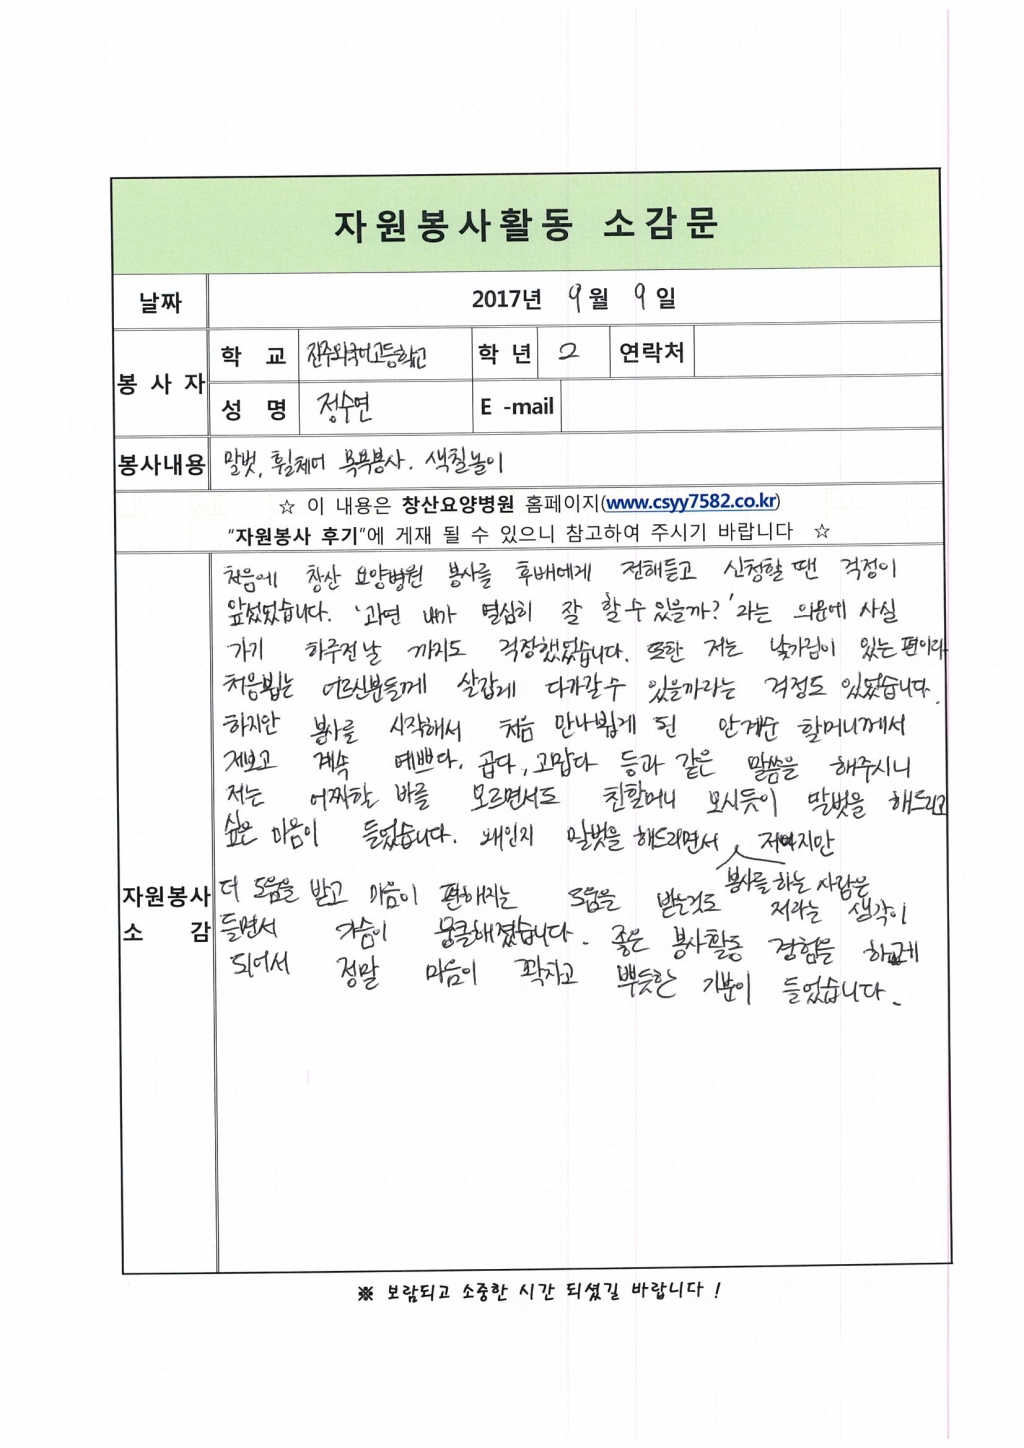 자원봉사활동 소감문
날짜 2017년 9월 9일
봉 사 자 학 교 진주외국어고등학교 학 년 2 연락처
성 명 정수연 E -mail
봉사내용 말벗, 휠체어 목욕봉사. 색칠놀이
☆ 이 내용은 창산요양병원 홈페이지(www.csyy7582.co.kr)
“자원봉사 후기”에 게재 될 수 있으니 참고하여 주시기 바랍니다 ☆
자원봉사 소 감
처음에 창산 요양병원 봉사를 후배에게 전해듣고 신청할 땐 걱정이
앞섰었습니다. '과연 내가 열심히 잘 할 수 있을까?'라는 의문에 사실
가기 하루전날 까지도 걱정했었습니다. 또한 저는 낯가림이 있는 편이라
처음뵙는 어르신분들께 살갑게 다가갈 수 있을까라는 걱정도 있었습니다.
하지만 봉사를 시작해서 처음 만나뵙게 된 안계순 할머니께서
제보고 계속 예쁘다. 곱다, 고맙다 등과 같은 말씀을 해주시니
저는 어찌할 바를 모르면서도 친할머니 모시듯이 말벗을 해드리고
싶은 마음이 들었습니다. 왜인지 말벗을 해드리면서 봉사를 하는 사람은 저이지만
더 도움을 받고 마음이 편해지는 도움을 받는것도 저라는 생각이
들면서 가슴이 뭉클해졌습니다. 좋은 봉사활동 경험을 하게
되어서 정말 마음이 꽉차고 뿌듯한 기분이 들었습니다.
※ 보람되고 소중한 시간 되셨길 바랍니다 !